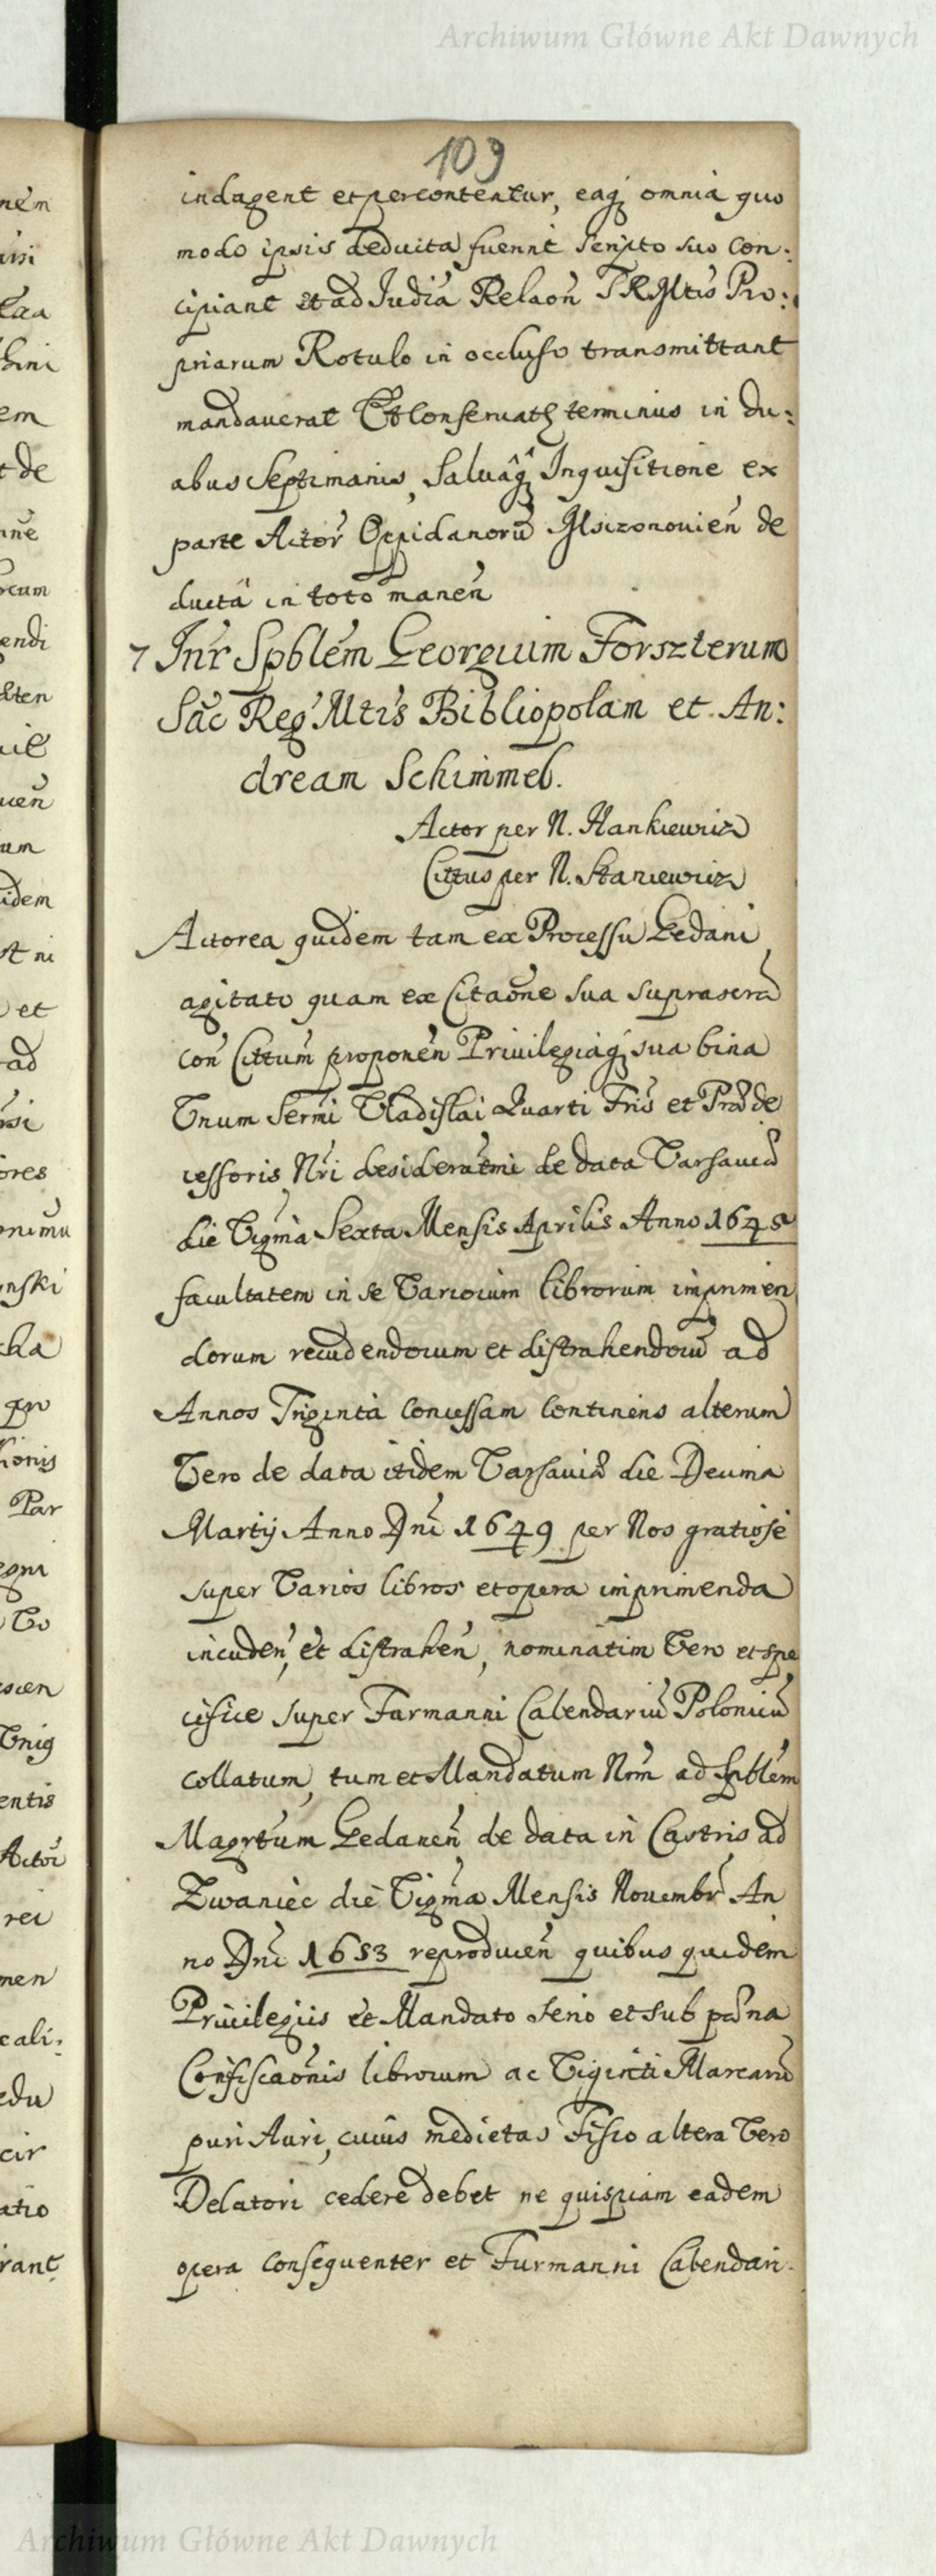 Archiwum Główne Akt Dawnych
109
indagent et percontentur, eaq; omnia quo
modo ipsis deducta fuerint scripto suo con:
cipiant et ad Judia Relaon SRMltis Pro:
priarum Rotulo in occluso transmittant
mandaverat Et conservatq terminus in du:
abus Septimanis, Salvaq; Inquisitione ex
parte Actor Oppidanoru de
ducta in toto manen
7 Int Spblem Georgium Forszterum
Sac Reg Mltis Bibliopolam et An:
dream Schimmel.
Actor per N. Hankiewicz
Cittus per N. Staniewicz
Actorea quidem tam ex Processu Gedani
agitato quam ex Citaone sua suprascra
con Cittum proponen Privilegiaq; sua bina
Vnum Sermi Vladislai Quarti Fris et Præde
cessoris Nri desideratmi de data Varsaviæ
die Vigma Sexta Mensis Aprilis Anno 1648
facultatem in se Variorum librorum imprimen
dorum recudendorum et distrahendoru ad
Annos Triginta concessam continens alterum
Vero de data itidem Varsaviæ die Decima
Martij Anno Dni 1649 per Nos gratiose
super Varios libros et opera imprimenda
incuden, et distrahen, nominatim Vero et spe
cifice super Furmanni Calendariu Polonicu
collatum, tum et Mandatum Nrm ad Spblem
Magrtum Gedanen de data in Castris ad
Zwaniec die Vigma Mensis Novembr An
no Dni 1653 reproducen quibus quidem
Privilegiis et Mandato serio et sub pæna
Confiscaonis librorum ac Viginti Marcaru
puri Auri, cuius medietas Fisco altera Vero
Delatori cedere debet ne quispiam eadem
opera consequenter et Furmanni Calendari
Archiwum Główne Akt Dawnych